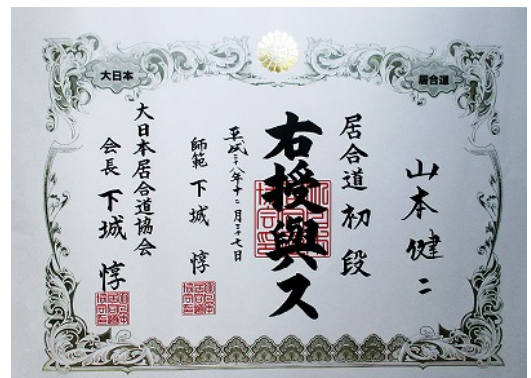 大日本
居合道
山本健二
居合道 初段
右授與ス
平成二八年十二月二十七日
師範 下城 惇
大日本居合道協会
会長 下城 惇